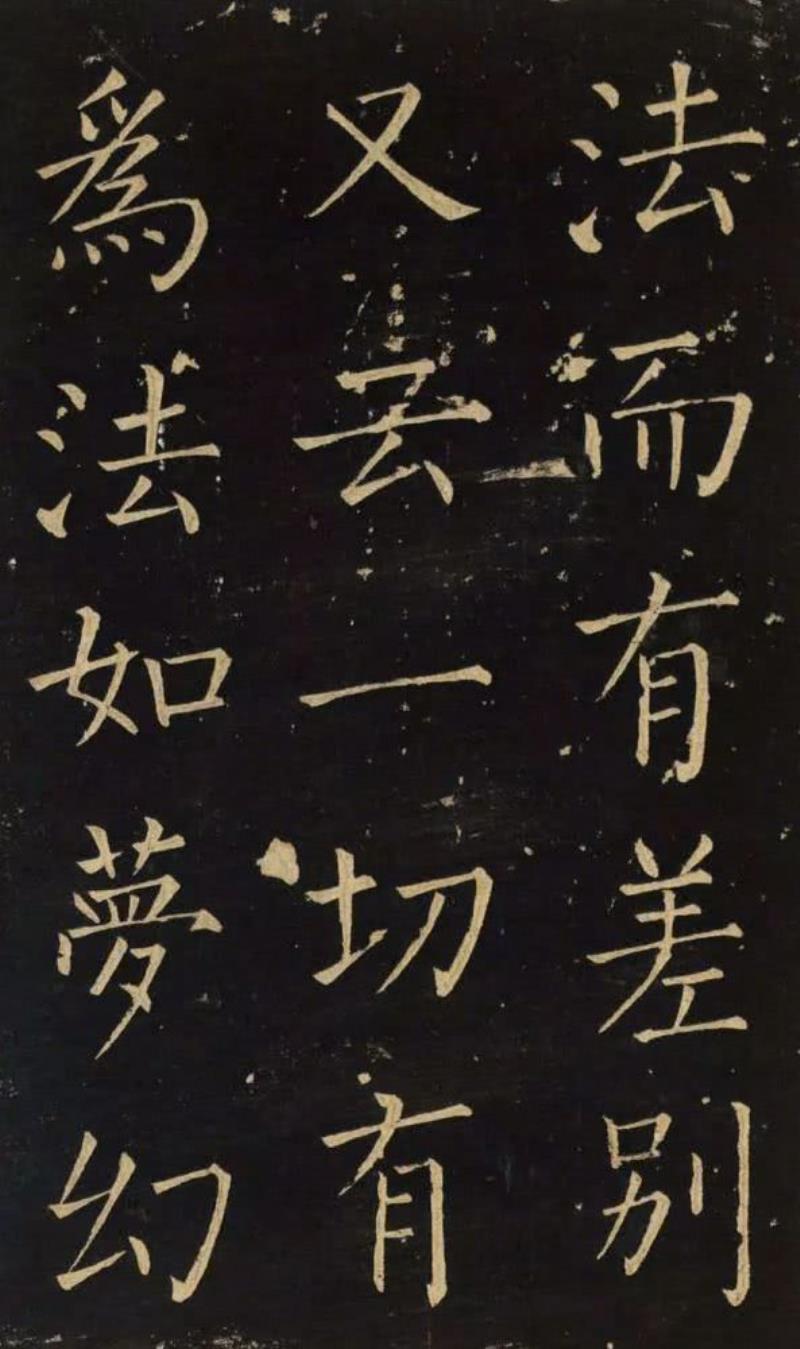 法而有差別
又云一切有
為法如夢幻